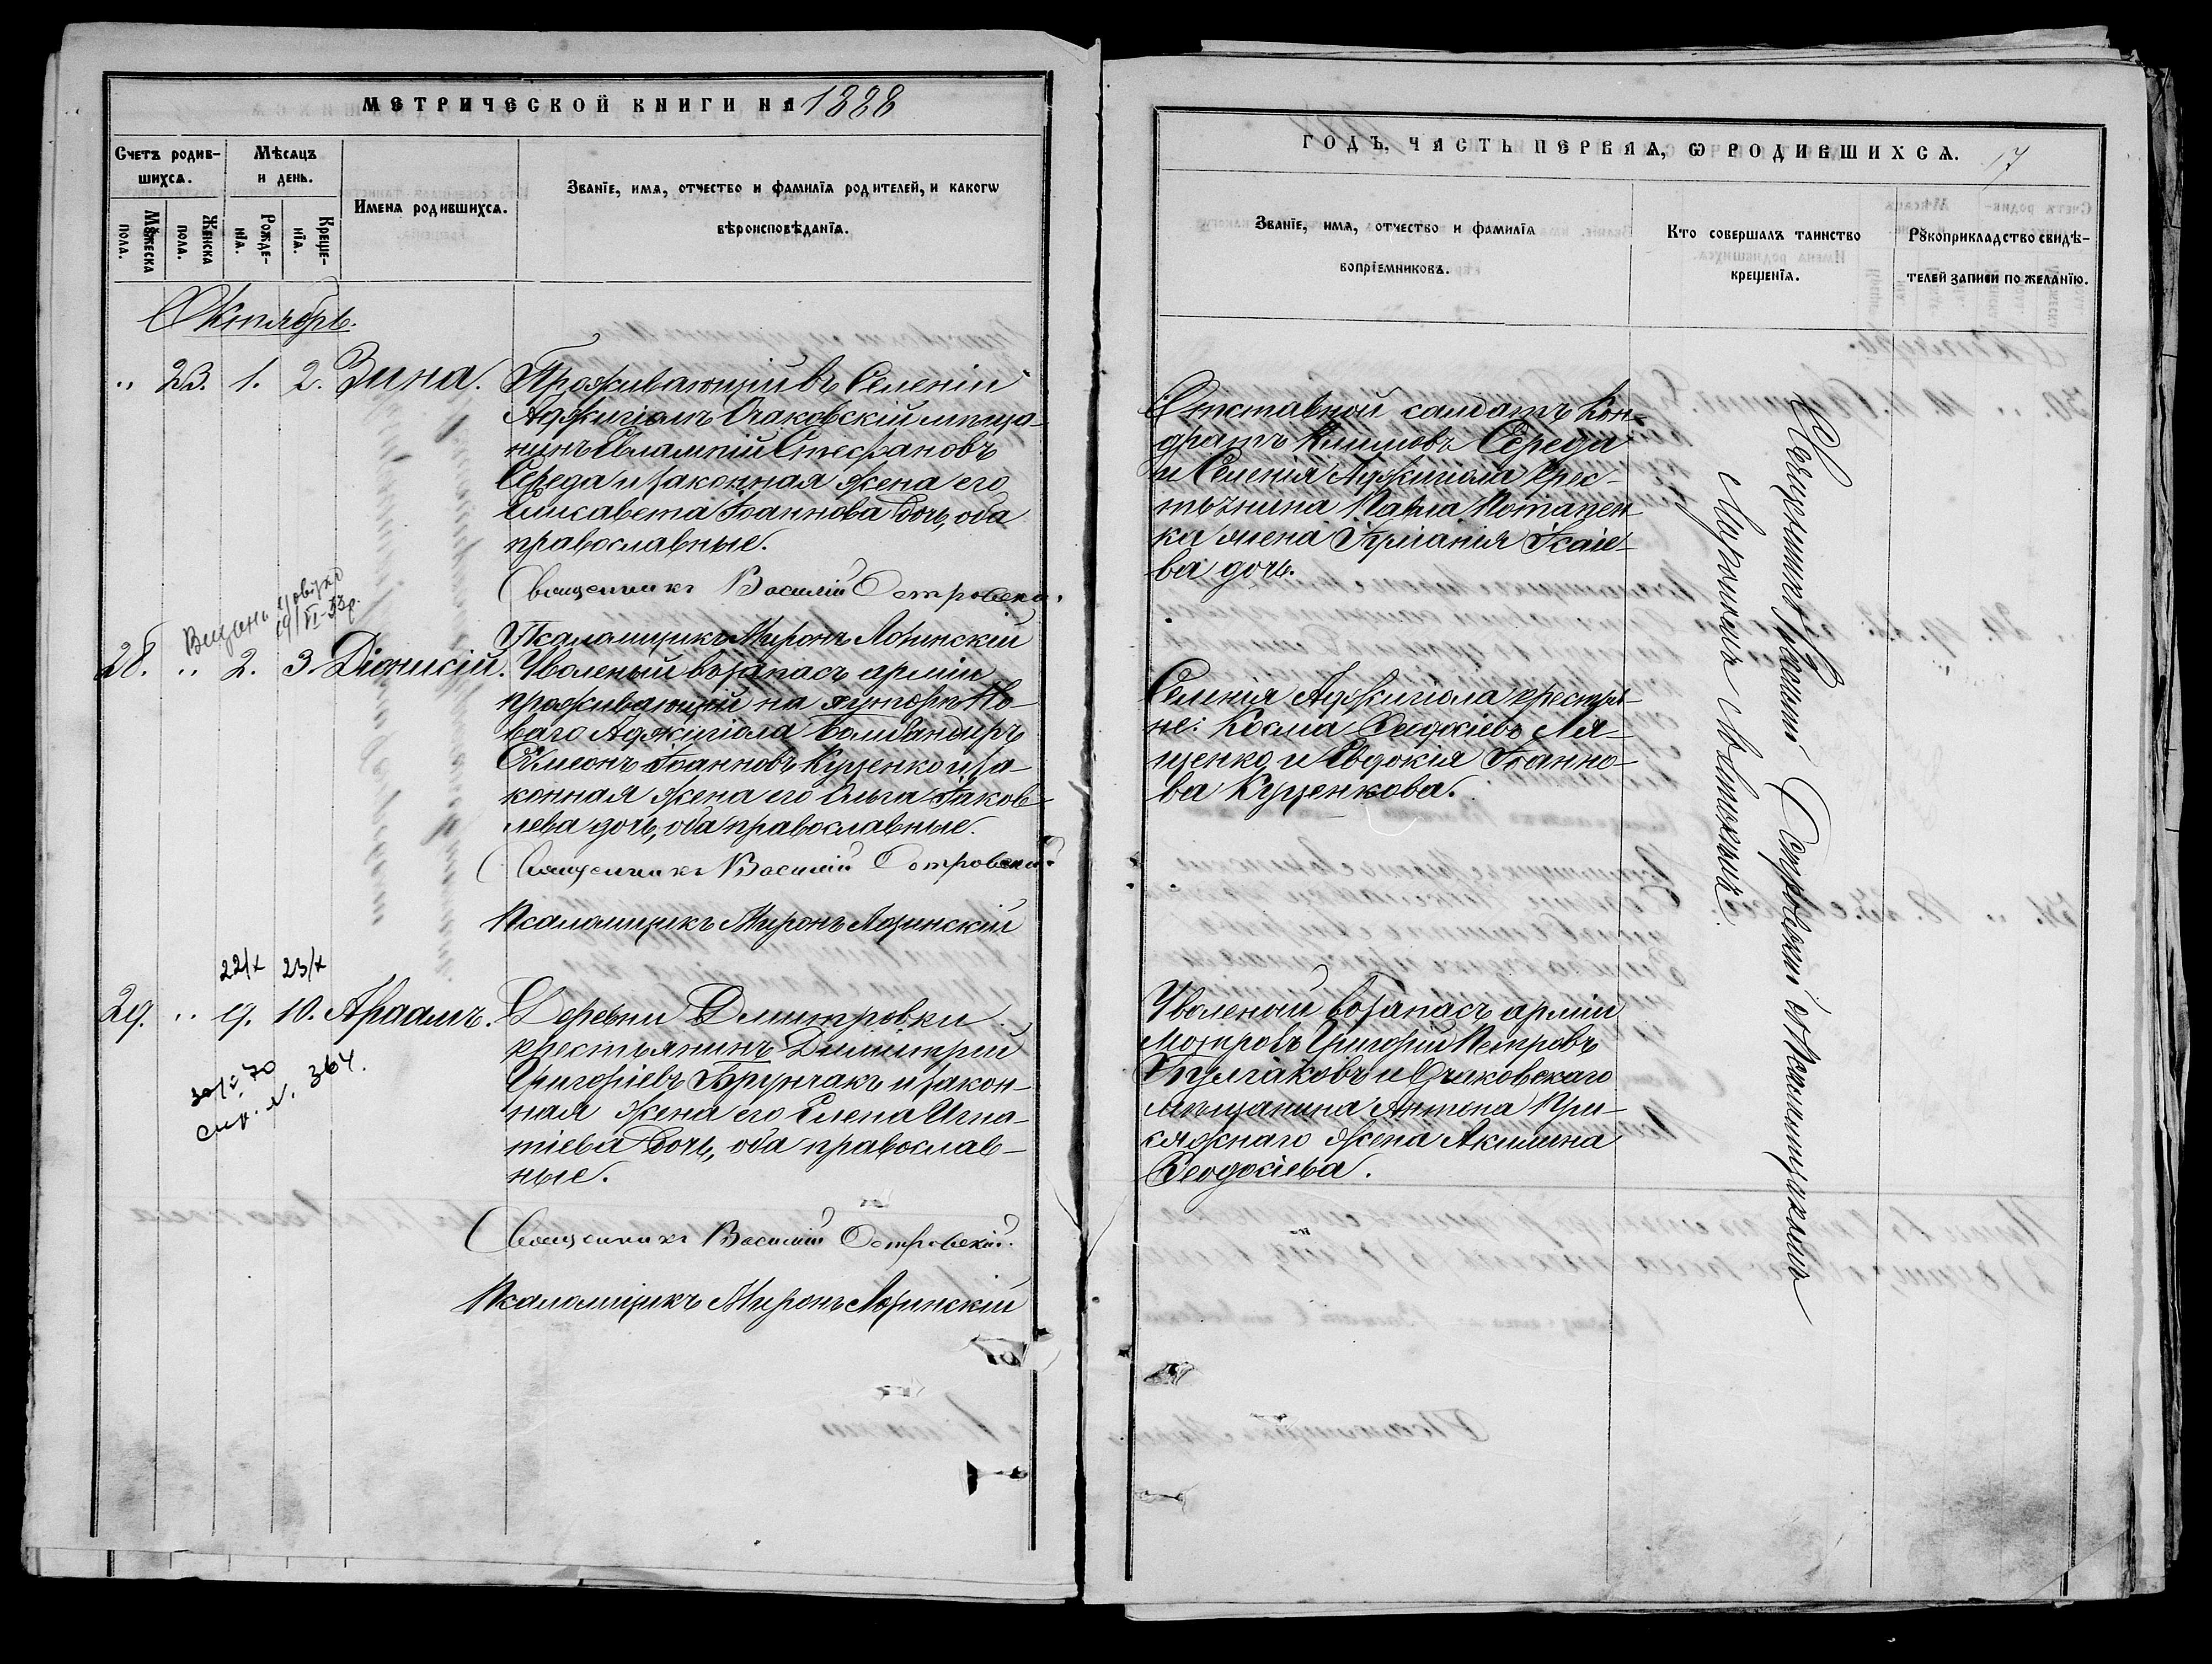 МЕТРИЧЕСКОЙ КНИГИ НА 1888
Счетъ родив-
шихся.
Мѣсяцъ
и день.
Имена родившихся.
Званіе, имя, отчество и фамилія родителей, и какогѡ
вѣроисповѣданія.
Мꙋжеска
пола.
Женска
пола.
Рожде-
нія.
Креще-
нія.
Октябрь.
" 23. 1. 2. Зина.
Проживающій въ Селеніи
Аджигіолъ Очаковскій мѣща-
нинъ Евлампій Стефановъ
Середа и законная жена его
Елисавета Іоаннова дочь, оба
православные.
Священникъ Василій Островскій
Псаломщикъ Миронъ Лозинскій
19/VI-33р.
28. " 2. 3. Діонисій.
Уволеный въ запасъ арміи
проживающій на хуторѣ Но-
ваго Аджигіола бомбандиръ
Симеонъ Іоанновъ Куценко и за-
конная жена его Ольга Іаков-
лева дочь, оба православные.
Священникъ Василій Островскій.
Псаломщикъ Миронъ Лозинскій
22/X 23/X
29. " 9. 10. Авраамъ.
70
364.
Деревни Дмитровки
крестьянинъ Димитрій
Григоріевъ Брунчакъ и закон-
ная жена его Елена Игна-
тіева дочь, оба православ-
ные.
Священникъ Василій Островскій.
Псаломщикъ Миронъ Лозинскій
ГОДЪ, ЧАСТЬ ПЕРВАЯ, Ѡ РОДИВШИХСЯ. 17
Званіе, имя, отчество и фамилія
воспріемниковъ.
Кто совершалъ таинство
крещенія.
Рꙋкоприкладство свидѣ-
телей записи по желанію.
Отставной салдатъ Кон-
дратъ Климовъ Середа
и Селенія Аджигіола крес-
тьянина Павла Потапен-
ка жена Ісаіе-
ва дочь.
Селенія Аджигіола крестья-
не: Косма Георгіевъ Ля-
щенко и Евдокія Іоанно-
ва Куценкова.
Уволеный въ запасъ арміи
Григорій Петровъ
Булгаковъ и Очаковскаго
мѣщанина Антона Кри-
сяжнаго жена Акилина
Ѳеодосіева.
Священникъ Василій Островскій съ Псаломщикомъ
Мирономъ Лозинскимъ.